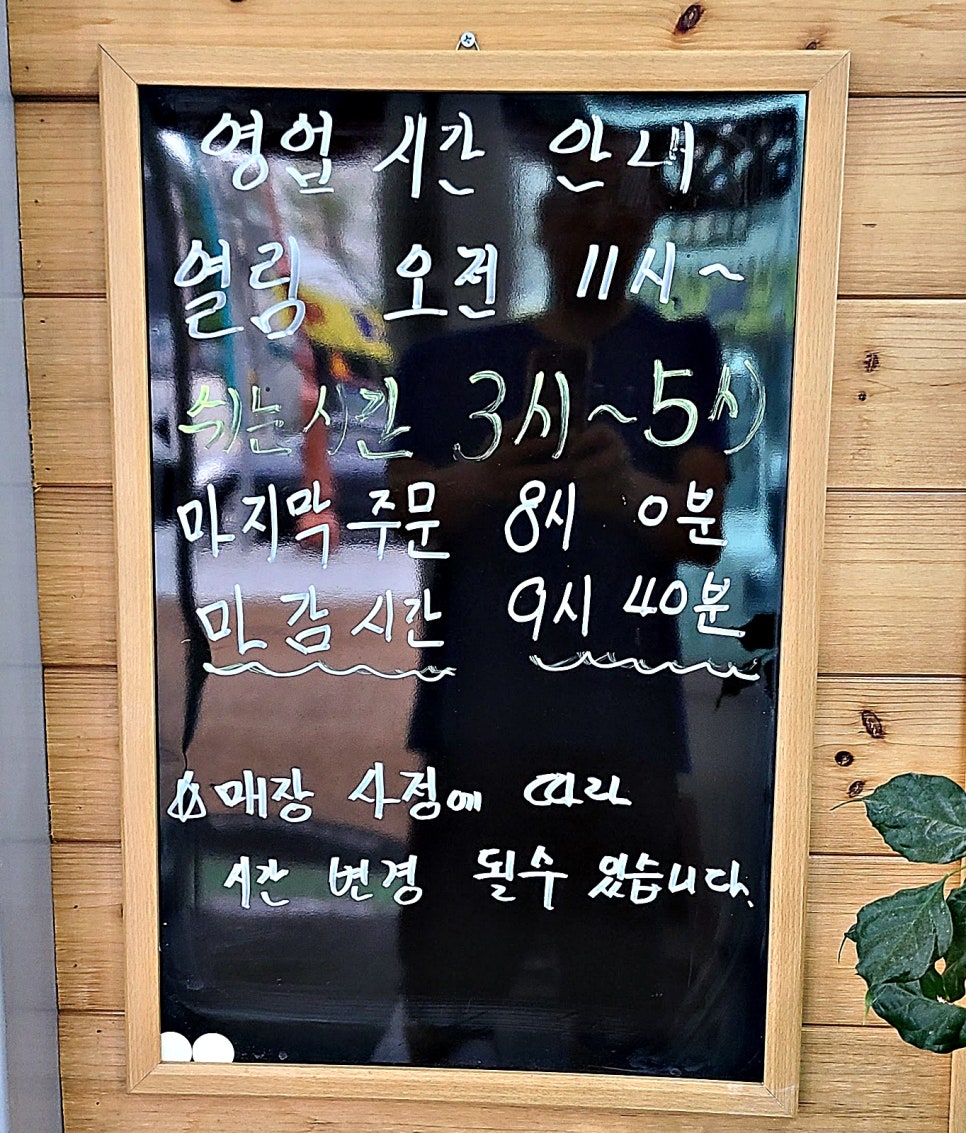 영업 시간 안내
열림 오전 11시~
쉬는시간 3시~5시
마지막 주문 8시 0분
마감시간 9시 40분
☆매장 사정에 따라
시간 변경 될수 있습니다.